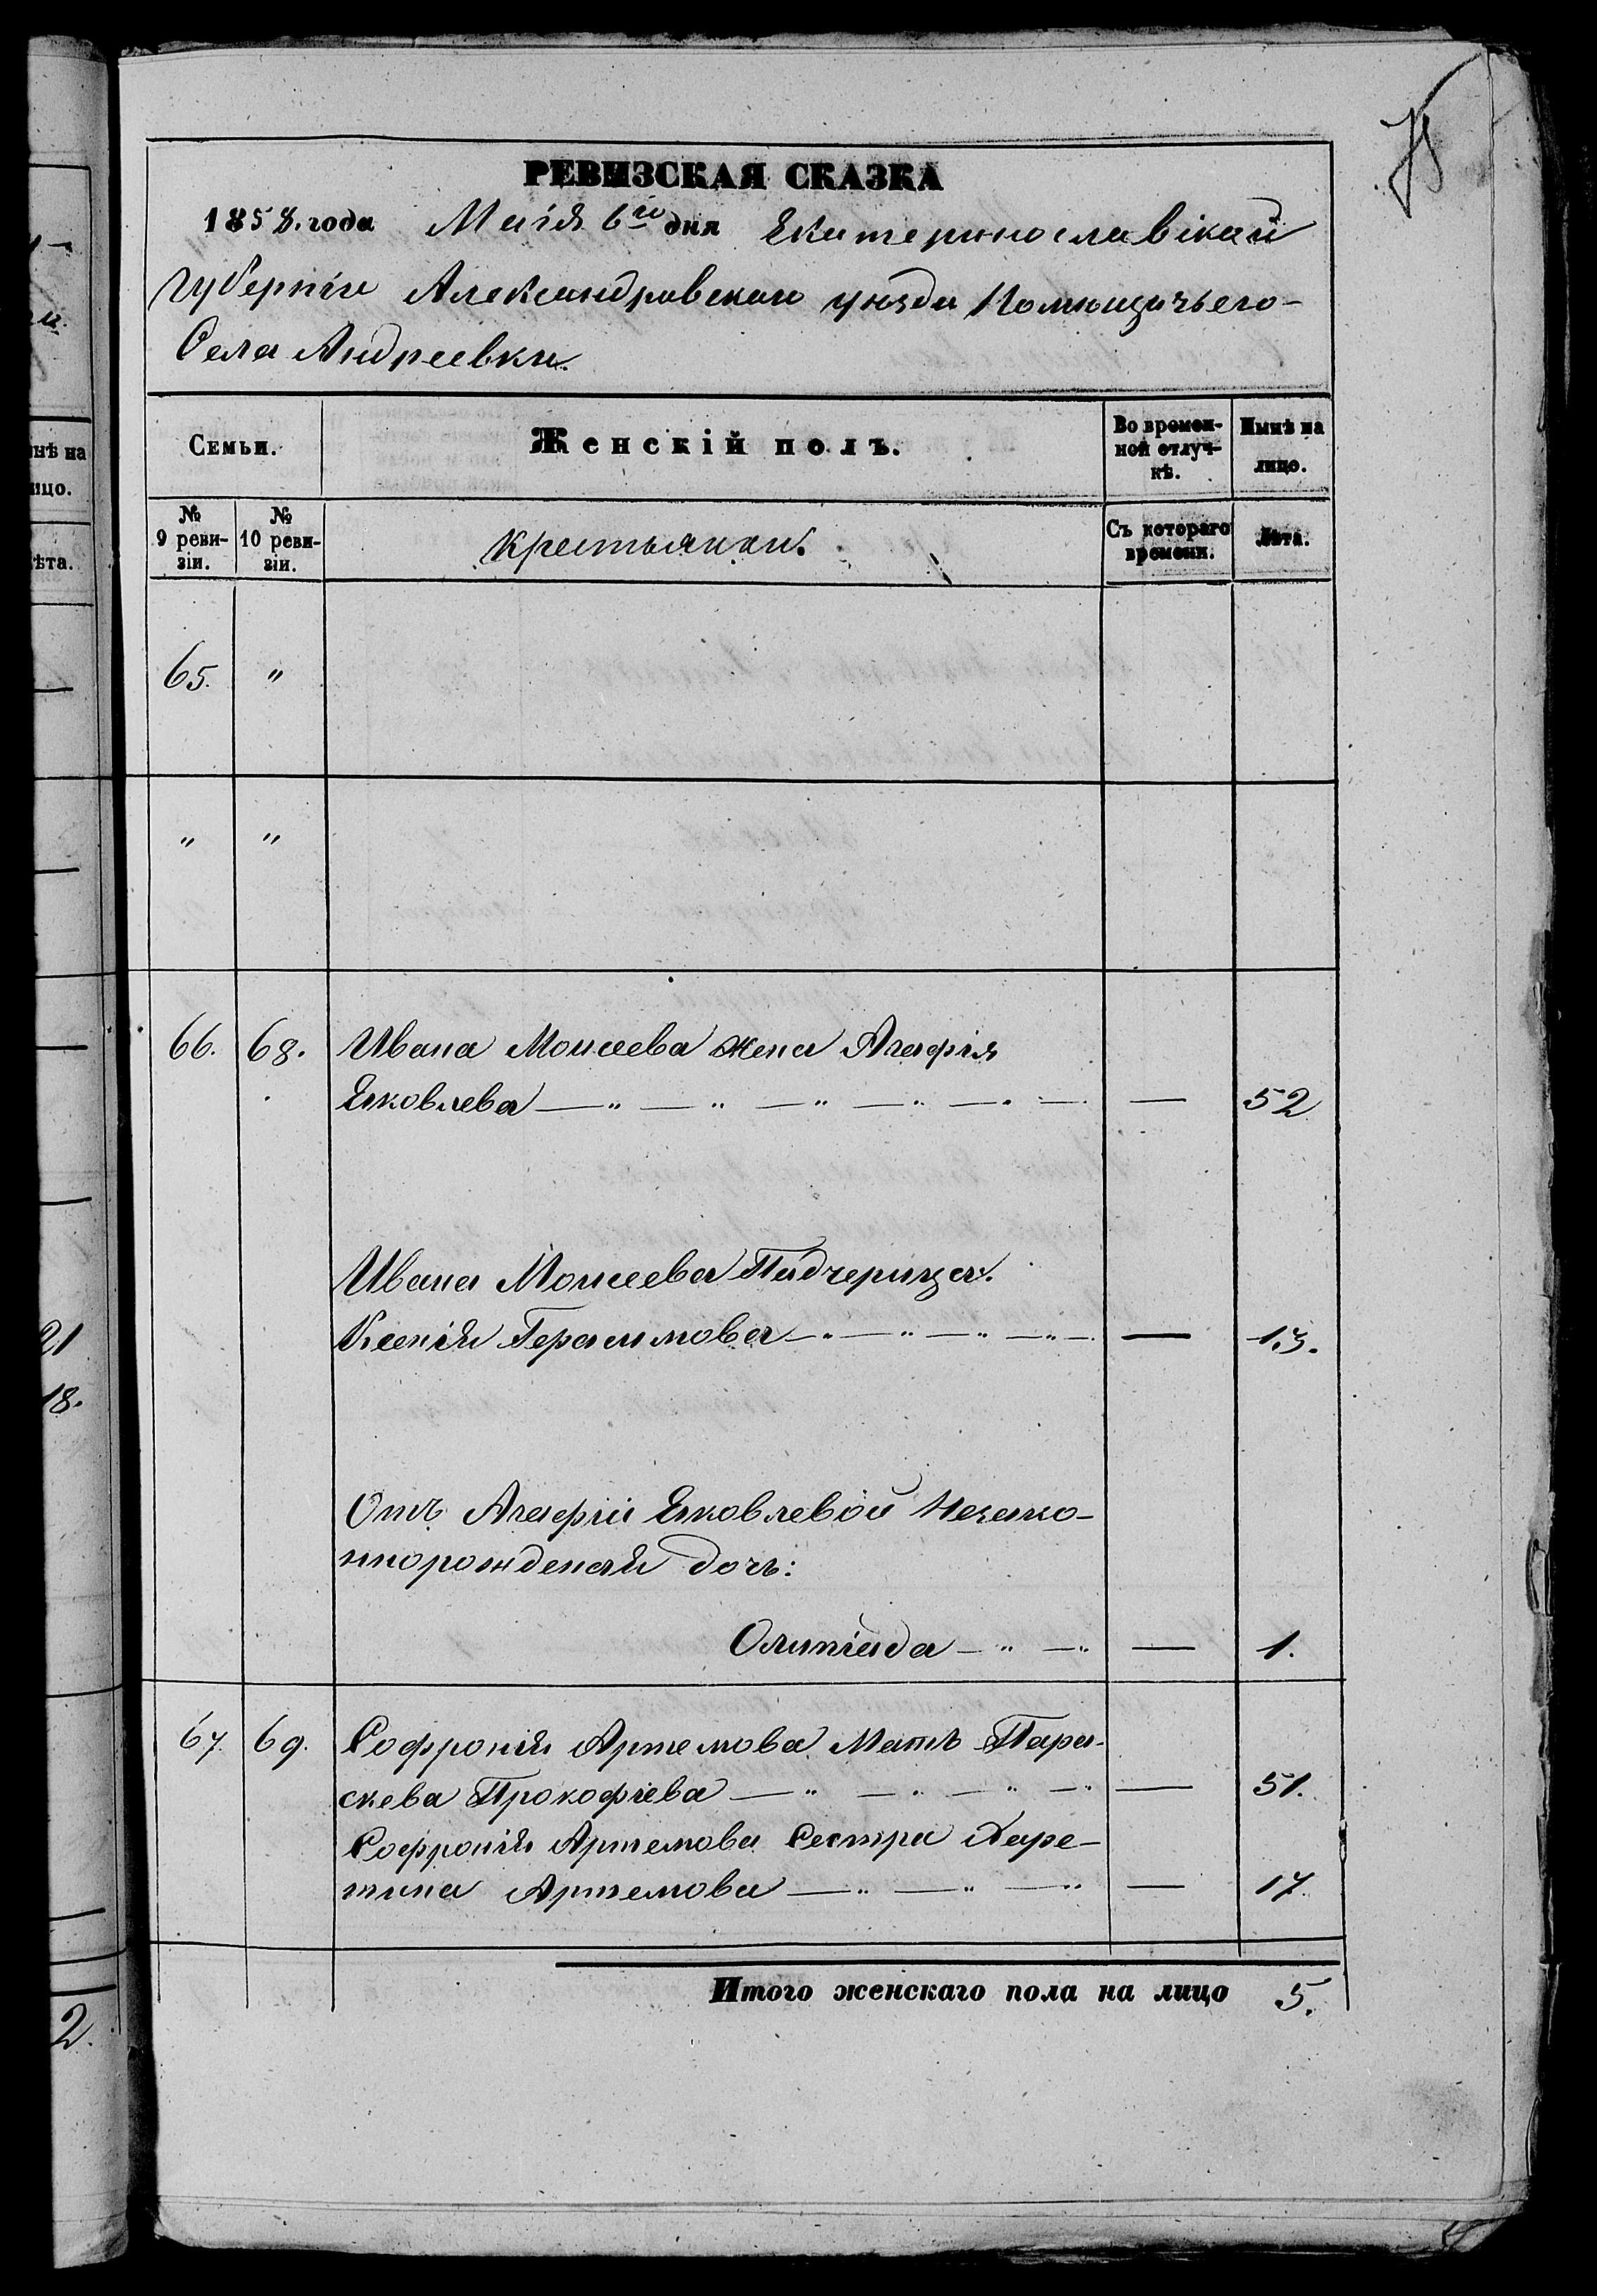 РЕВИЗСКАЯ СКАЗКА
1858. года Маія 6го дня Екатеринославской
Губерніи Александровскаго уѣзда Помѣщичьего
Села Андреевки.
Семьи. Женскій полъ. Во времен-ной отлуч-кѣ. Нынѣ на лицо.
№ 9 реви-зіи. № 10 реви-зіи. Крестьянки. Съ котораго времени. Лѣта.
65. "
" "
66. 68. Ивана Моисеева жена Агафія
Яковлева — " — " — " — " — " — — 52
Ивана Моисеева Падчерица.
Ксенія Герасимова — " — " — " — " — — 13.
Отъ Агафіи Яковлевой Незако-
ннорожденая дочь:
Олипіада — " — " — 1.
67. 69. Софронія Артемова Мать Пара-
скева Прокофіева — " — " — " — " — 51.
Софронія Артемова Сестра Харе-
тина Артемова — " — " — " — 17.
Итого женскаго пола на лицо 5.
нѣ на
ицо.
ѣта.
21
18.
2.